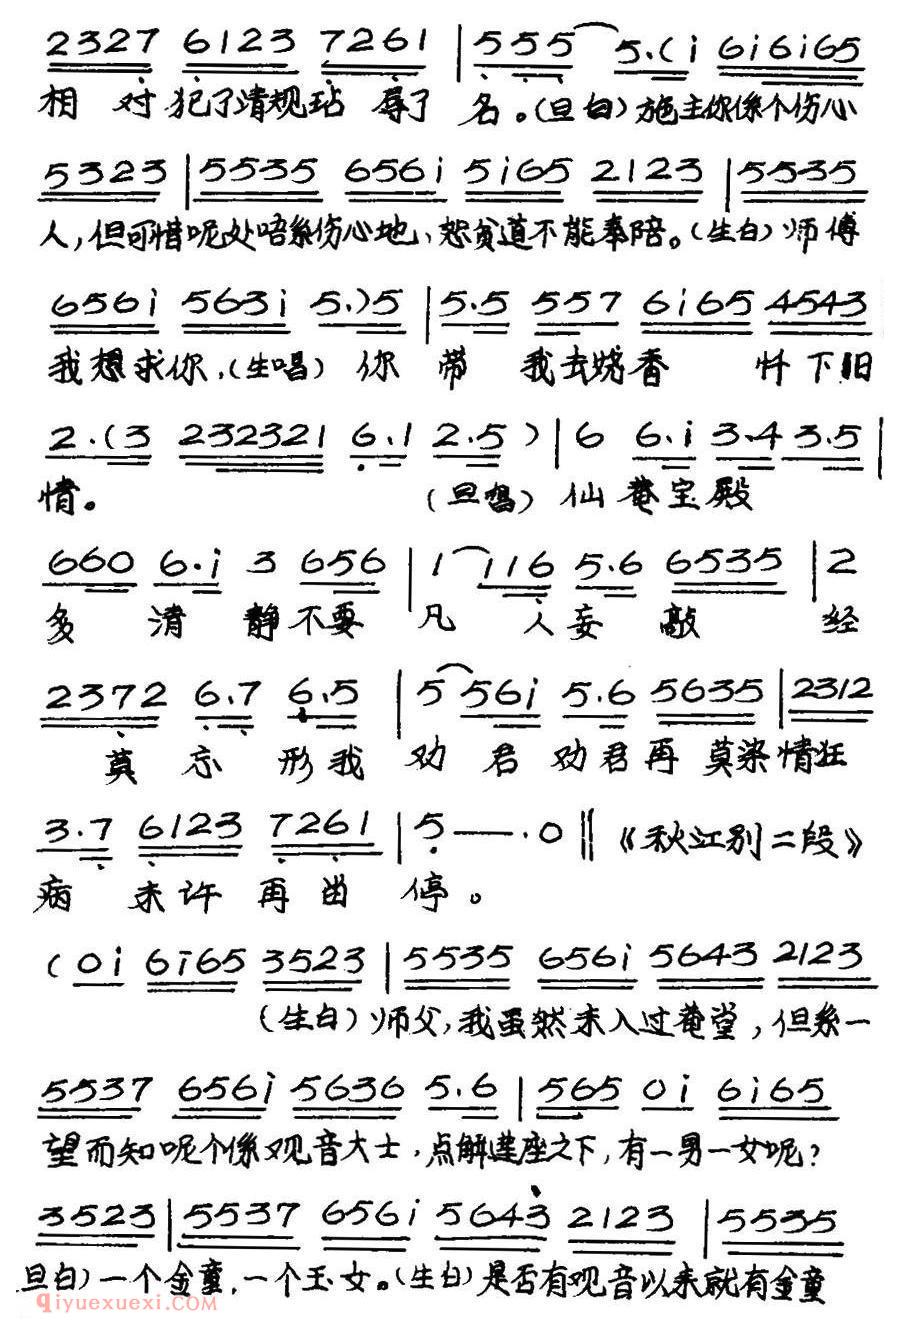 2327 6123 7261 | 555 5.(i 6i6i65
相对犯了清规玷辱了名。(旦白)施主你係个伤心
5323 | 5535 656i 5i65 2123 | 5535
人,但可惜呢处唔系伤心地、恕贫道不能奉陪。(生白)师傅
656i 563i 5.)5 | 5.5 557 6i65 4543
我想求你,(生唱)你带我去烧香忏下旧
2.(3 232321 6.1 2.5) | 6 6.i 3.4 3.5 |
情。(旦唱)仙菴宝殿
660 6.i 3 656 | 1 116 5.6 6535 | 2
多清静不要凡人妄敲经
2372 6.7 6.5 | 5 56i 5.6 5635 | 2312
莫忘形我劝君劝君再莫染情狂
3.7 6123 7261 | 5—.0 ‖《秋江别二段》
病未许再曲停。
(0i 6i65 3523 | 5535 656i 5643 2123
(生白)师父,我虽然未入过菴堂,但系一
5537 656i 5636 5.6 | 565 0i 6i65
望而知呢个係观音大士,点解莲座之下,有一男一女呢?
3523 | 5537 656i 5643 2123 | 5535
旦白)一个金童,一个玉女。(生白)是否有观音以来就有金童
qiyuexuexi.com